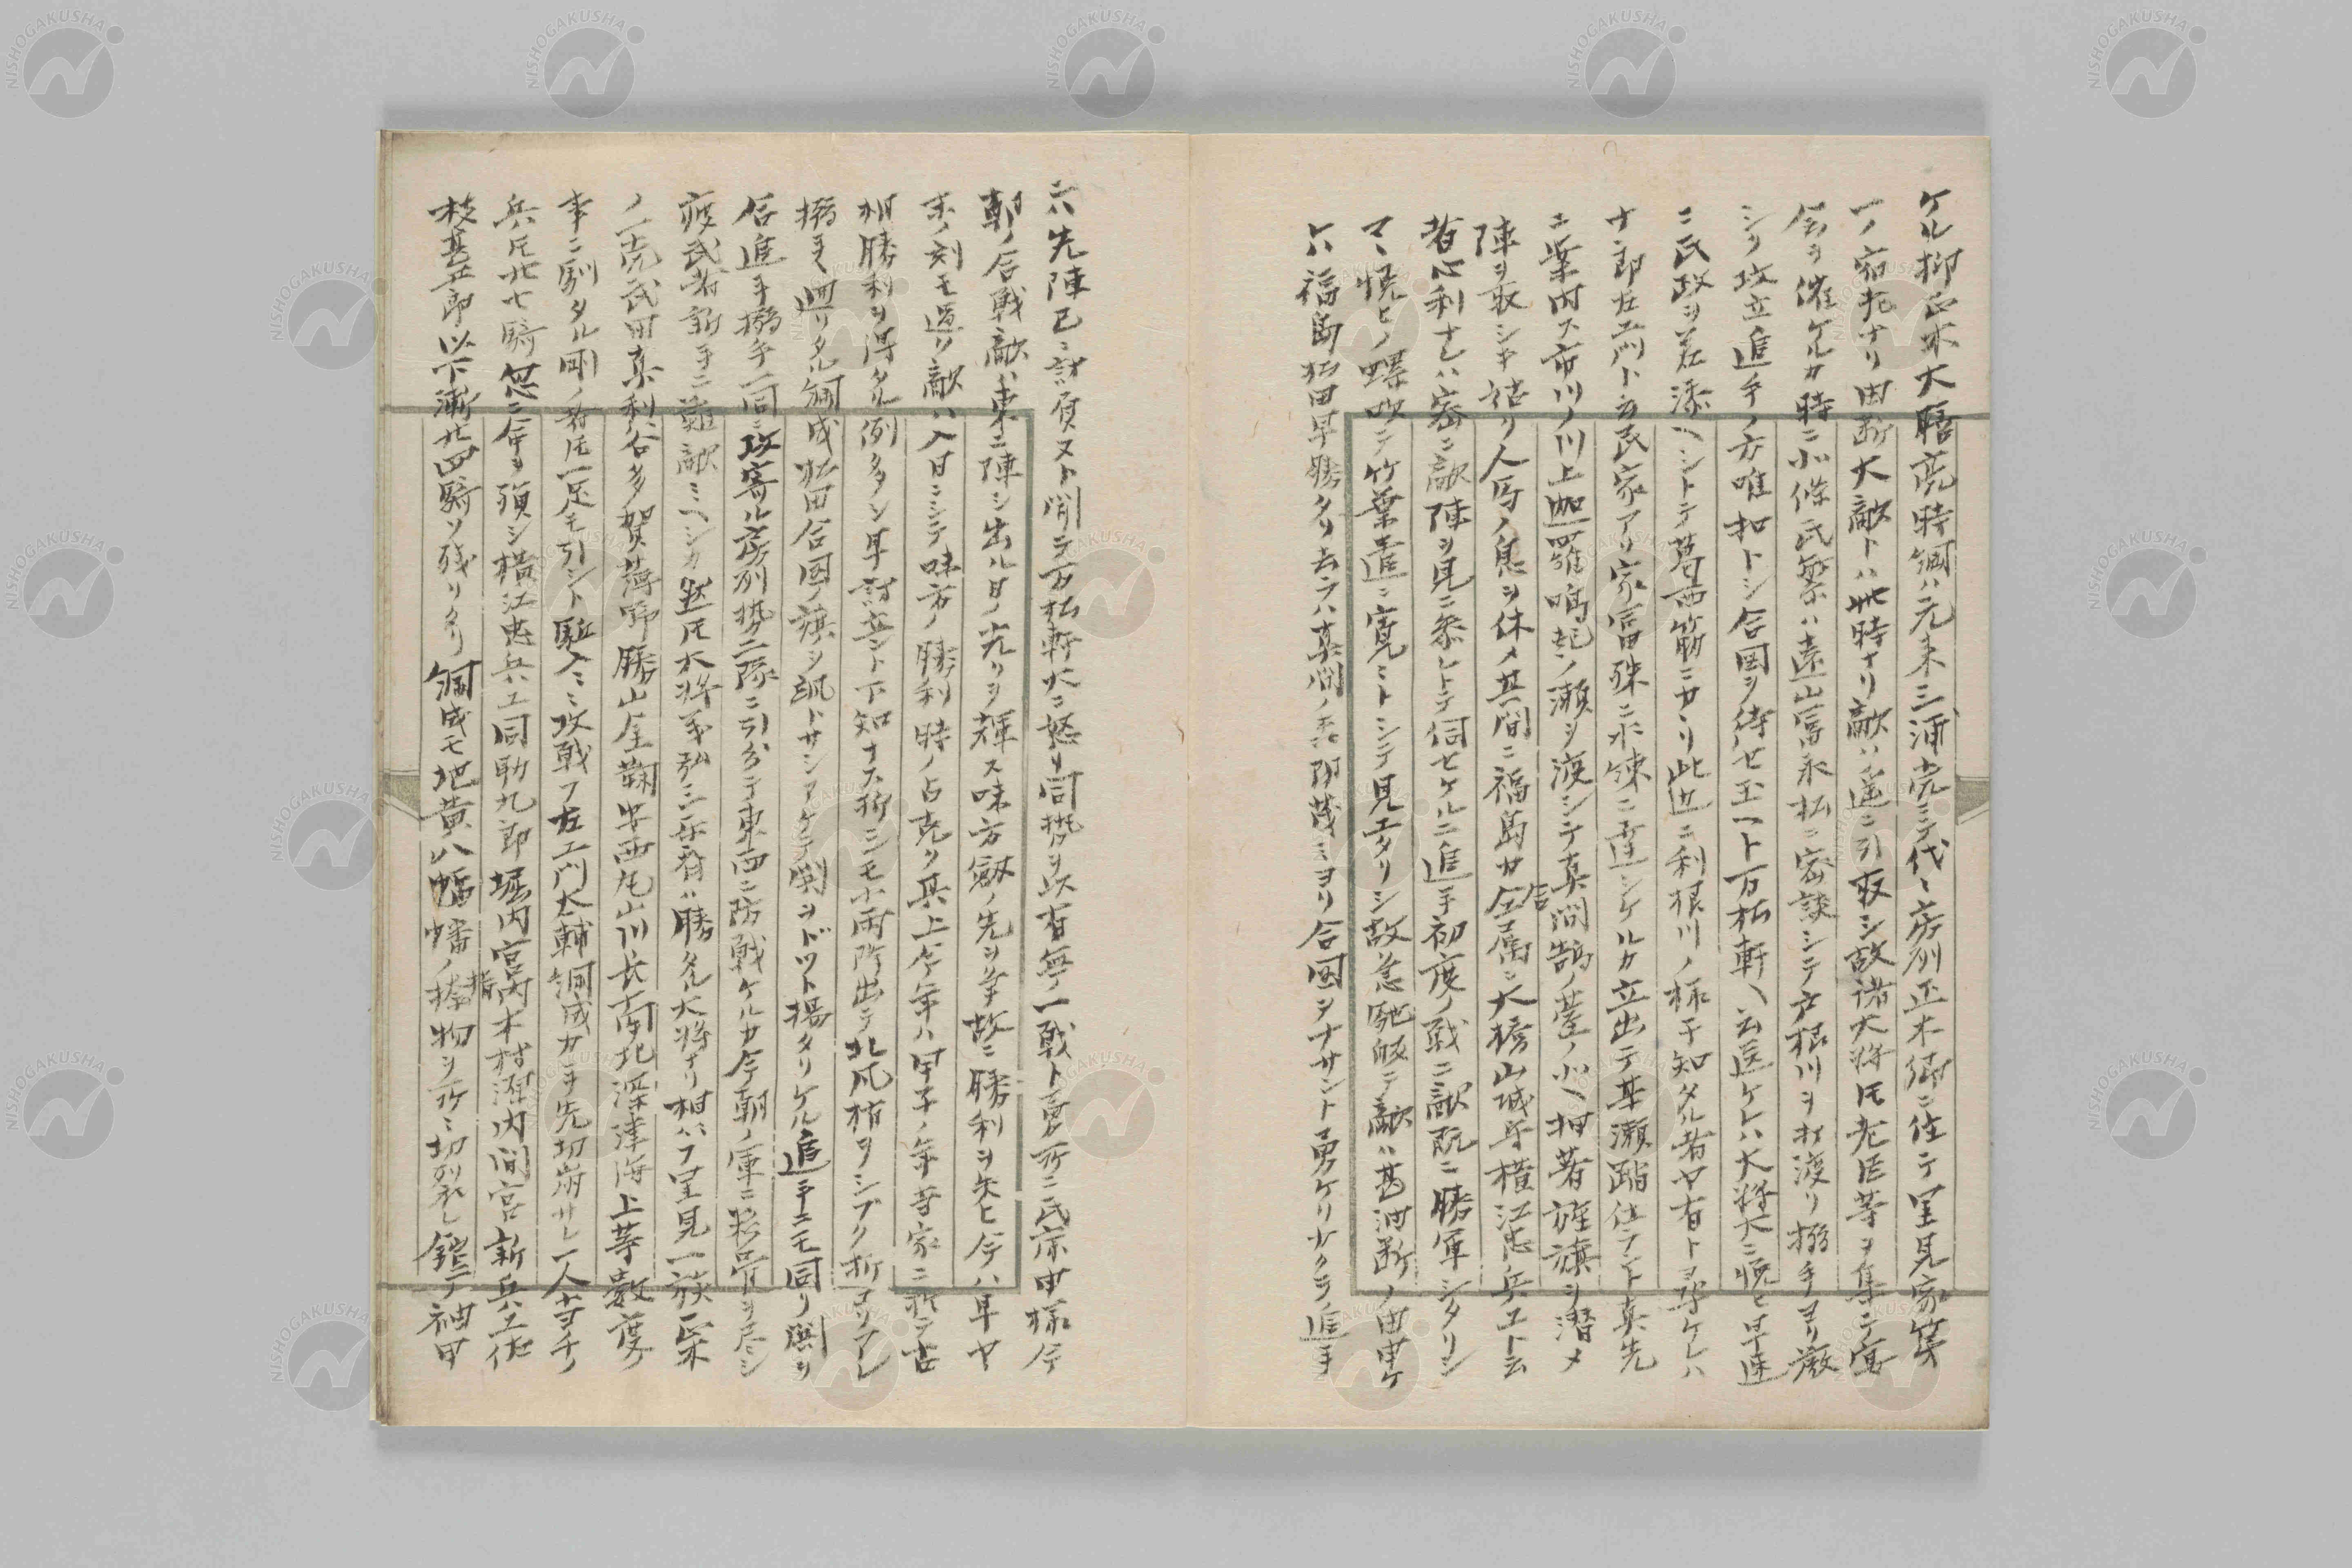 ケル抑正木大膳亮時綱ハ元来三浦党ニテ代々房列正木郷ニ住テ里見家第
一ノ宿老ナリ由断大敵トハ此時ナリ敵ハ遥ニ引取シ故諸大将氏老臣等ヲ集テ宴
会ヲ催ケルカ時ニ小條氏繁ハ遠山冨永松ニ密談シテ戸根川ヲ打渡リ搦手ヨリ厳
シク攻立追手ノ方唯扣トシ合図ヲ待セ玉ヘト万松軒ヘ云送ケレハ大将大ニ悦ヒ早速
ニ氏政ヲ差添ヘシトテ葛西筋ニサヽリ此辺ニ利根川ノ様子知タル者ヤ有トヲ尋ケレハ
十郎左エ門ト云民家アリ家冨殊ニ水練ニ達シケルカ立出テ某瀬踏仕ラント真先
ニ案内ス市川ノ川上迦羅鳴起ノ瀬ヲ渡シテ真間鵠ノ臺ノ小ヘ押着旌旗ヲ潜メ
陣ヲ取シキ詰リ人馬ノ息ヲ休メ其間ニ福島カ与属ニ大橋山城守横江忠兵エト云
者心利ナレハ密ニ敵陣ヲ見ニ参レトテ伺セケルニ追手初度ノ戦ニ敵既ニ勝軍シタリシ
マヽ悦ヒノ螺吹テ竹葉遣ニ寛ミトシテ見エタリシ故急馳皈テ敵ハ甚油断ノ由申ケ
レハ福島松田早勝タリ去ラハ真間ノ森陰茂ミヨリ合図ヲナサント勇ケリ少クヲ追手
ニハ先陣已ニ討負スト聞テ万松軒大ニ怒リ同勢ヲ以有無ノ一戦ト勇所ニ氏康申様今
朝ノ合戦敵ハ東ニ陣シ出ル日ノ光リヲ輝ス味方劔ノ先ヲ争故ニ勝利ヲ失ヒ今ハ早ヤ
未ノ刻モ過リ敵ハ入日ニシテ味方ノ勝利時ノ占克ク其上今年ハ甲子ノ年当家ニ於テ吉
相勝利ヲ得タル例多タシ早討立ント下知ナス折シモ小雨降出テ北風梢ヲシブク折ヨリアレ
搦手ヘ廻リタル綱成松田合図ノ旗ヲ颯トサシアケテ鬨ヲドット揚タリケル追手ニモ同リ鬨ヲ
合追手搦手一同ニ攻寄ル房列勢二隊ニ引分テ東西ニ防戦ケルカ今朝ノ軍ニ粉骨ヲ尽シ
疲武者新手ニ難敵ミヘシカ然氏大将義弘三樂斎ハ勝タル大将ナリ相ハフ里見一族正木
ノ一党武田真利谷多賀薄野勝山座鞠安西丸山川長南北深津海上等数度ノ
事ニ馴タル剛ノ者氏一足モ引シト駈入ミ攻戦フ左エ門太輔綱成カヲ先切崩サレ一人当千ノ
兵氏廿七騎忽ニ命ヲ殞シ横江忠兵エ同助九郎堀内宮内木村源内間宮新兵エ佐
枝甚五郎以下漸廿四騎ソ残リタリ綱成モ地黄八幡幡ノ指物ヲ所ミ切裂レ鎧テ袖甲